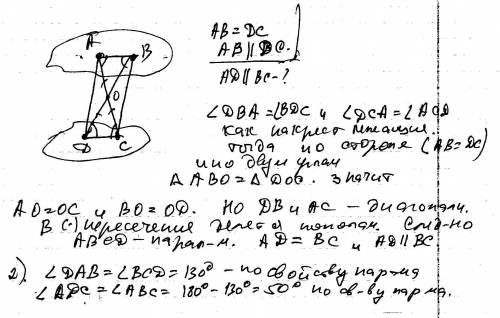 A B
O
D C
AB = DC
AB ∥ DC.
AD ∥ BC - ?
∠DBA = ∠BDC и ∠DCA = ∠ACD
как накрест лежащие.
тогда по стороне (AB = DC)
и по двум углам
△ ABO = △ DOC. значит
AO = OC и BO = OD. НО DB и AC - диагонали.
В (·) пересечения делятся пополам. След-но
ABCD - парал-м. AD = BC и AD ∥ BC
2). ∠DAB = ∠BCD = 130° - по свойству пар-ма
∠ADC = ∠ABC = 180° - 130° = 50° по св-ву пар-ма.